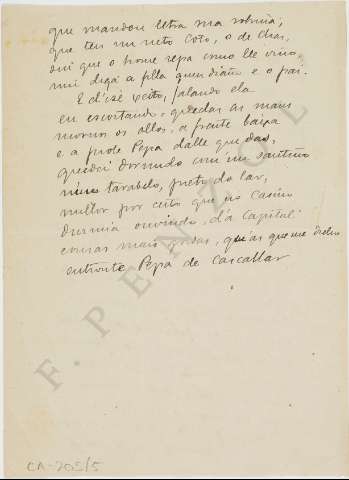 que mandou letra na sobriña,
que ten un neto coto, o de Chas,
sin que o home sepa como lle vino,
nin diga a filla quen diaño e o pai.
E d'ise xeito, falando ela
eu escoitando, quedas as mans
mornos os ollos, a frente baixa
e a probe Pepa dalle que das,
quedei dormido com un santiño
tarabelo, preto do lar,
millor por certo que no Casino
durmia ouvindo, d'a Capital
cousas mais que as que me dixo
entronte Pepa de Cascallar
F. PENZOL
CA-205/5